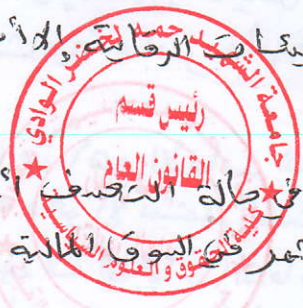 الرقابية الأ
جامعة الشهيد حمه لخضر الوادي
رئيس قسم
القانون العام
كلية الحقوق و العلوم السياسية
في حالة التصرف أ
في السوق المالية